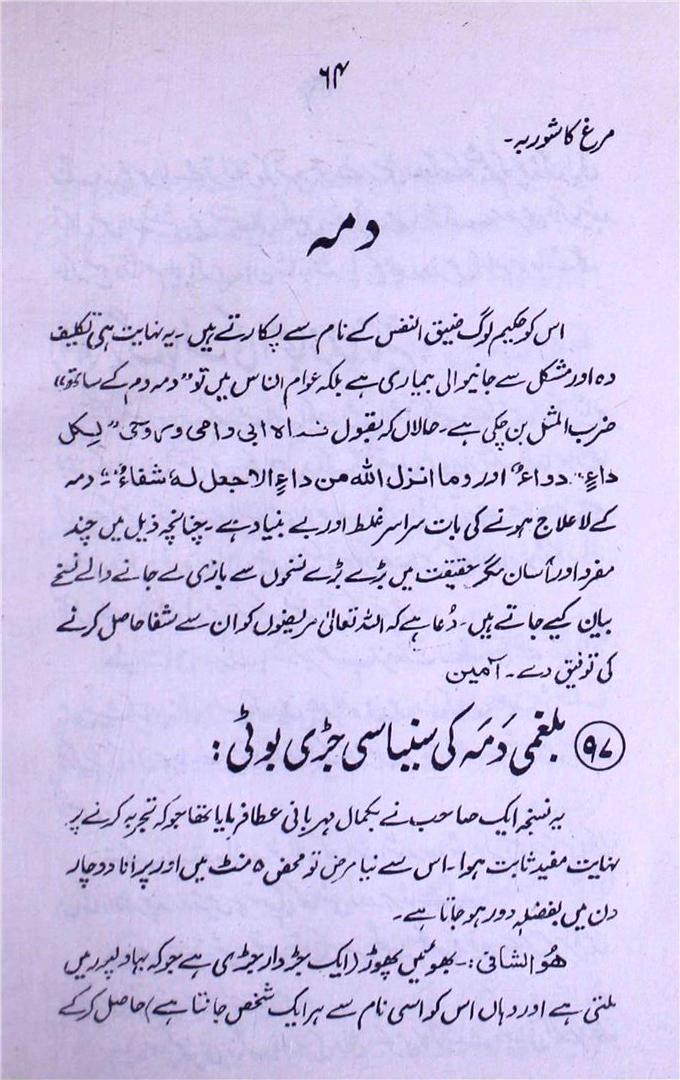 ۶۴
مرغ کا شوربہ۔
دمہ
اس کو حکیم لوگ ضیق النفس کے نام سے پکارتے ہیں۔ یہ نہایت ہی تکلیف
دہ اور مشکل سے جانیوالی بیماری ہے بلکہ عوام الناس میں تو "دمہ دم کے ساتھ"
ضرب المثل بن چکی ہے۔ حالاں کہ بقول فداہ ابی و امی و روحی "لکل
داءٍ دواءٌ اور وما انزل اللہ من داءٍ الا جعل لہٗ شفاءٌ" دمہ
کے لاعلاج ہونے کی بات سراسر غلط اور بے بنیاد ہے۔ چنانچہ ذیل میں چند
مفرد اور آسان مگر حقیقت میں بڑے بڑے نسخوں سے بازی لے جانے والے نسخے
بیان کیے جاتے ہیں۔ دُعا ہے کہ اللہ تعالیٰ مریضوں کو ان سے شفا حاصل کرنے
کی توفیق دے۔ آمین
۹۷ بلغمی دَمَہ کی سنیاسی جڑی بوٹی:
یہ نسخہ ایک صاحب نے بکمال مہربانی عطا فرمایا تھا جو کہ تجربہ کرنے پر
نہایت مفید ثابت ہوا۔ اس سے نیا مرض تو محض ۵ منٹ میں اور پرانا دو چار
دن میں بفضلہٖ دور ہو جاتا ہے۔
ھُوَ الشافی:۔ بھوئیں پھوڑ (ایک جڑ دار جڑی ہے جو کہ بہاولپور میں
ملتی ہے اور وہاں اس کو اسی نام سے ہر ایک شخص جانتا ہے) حاصل کر کے